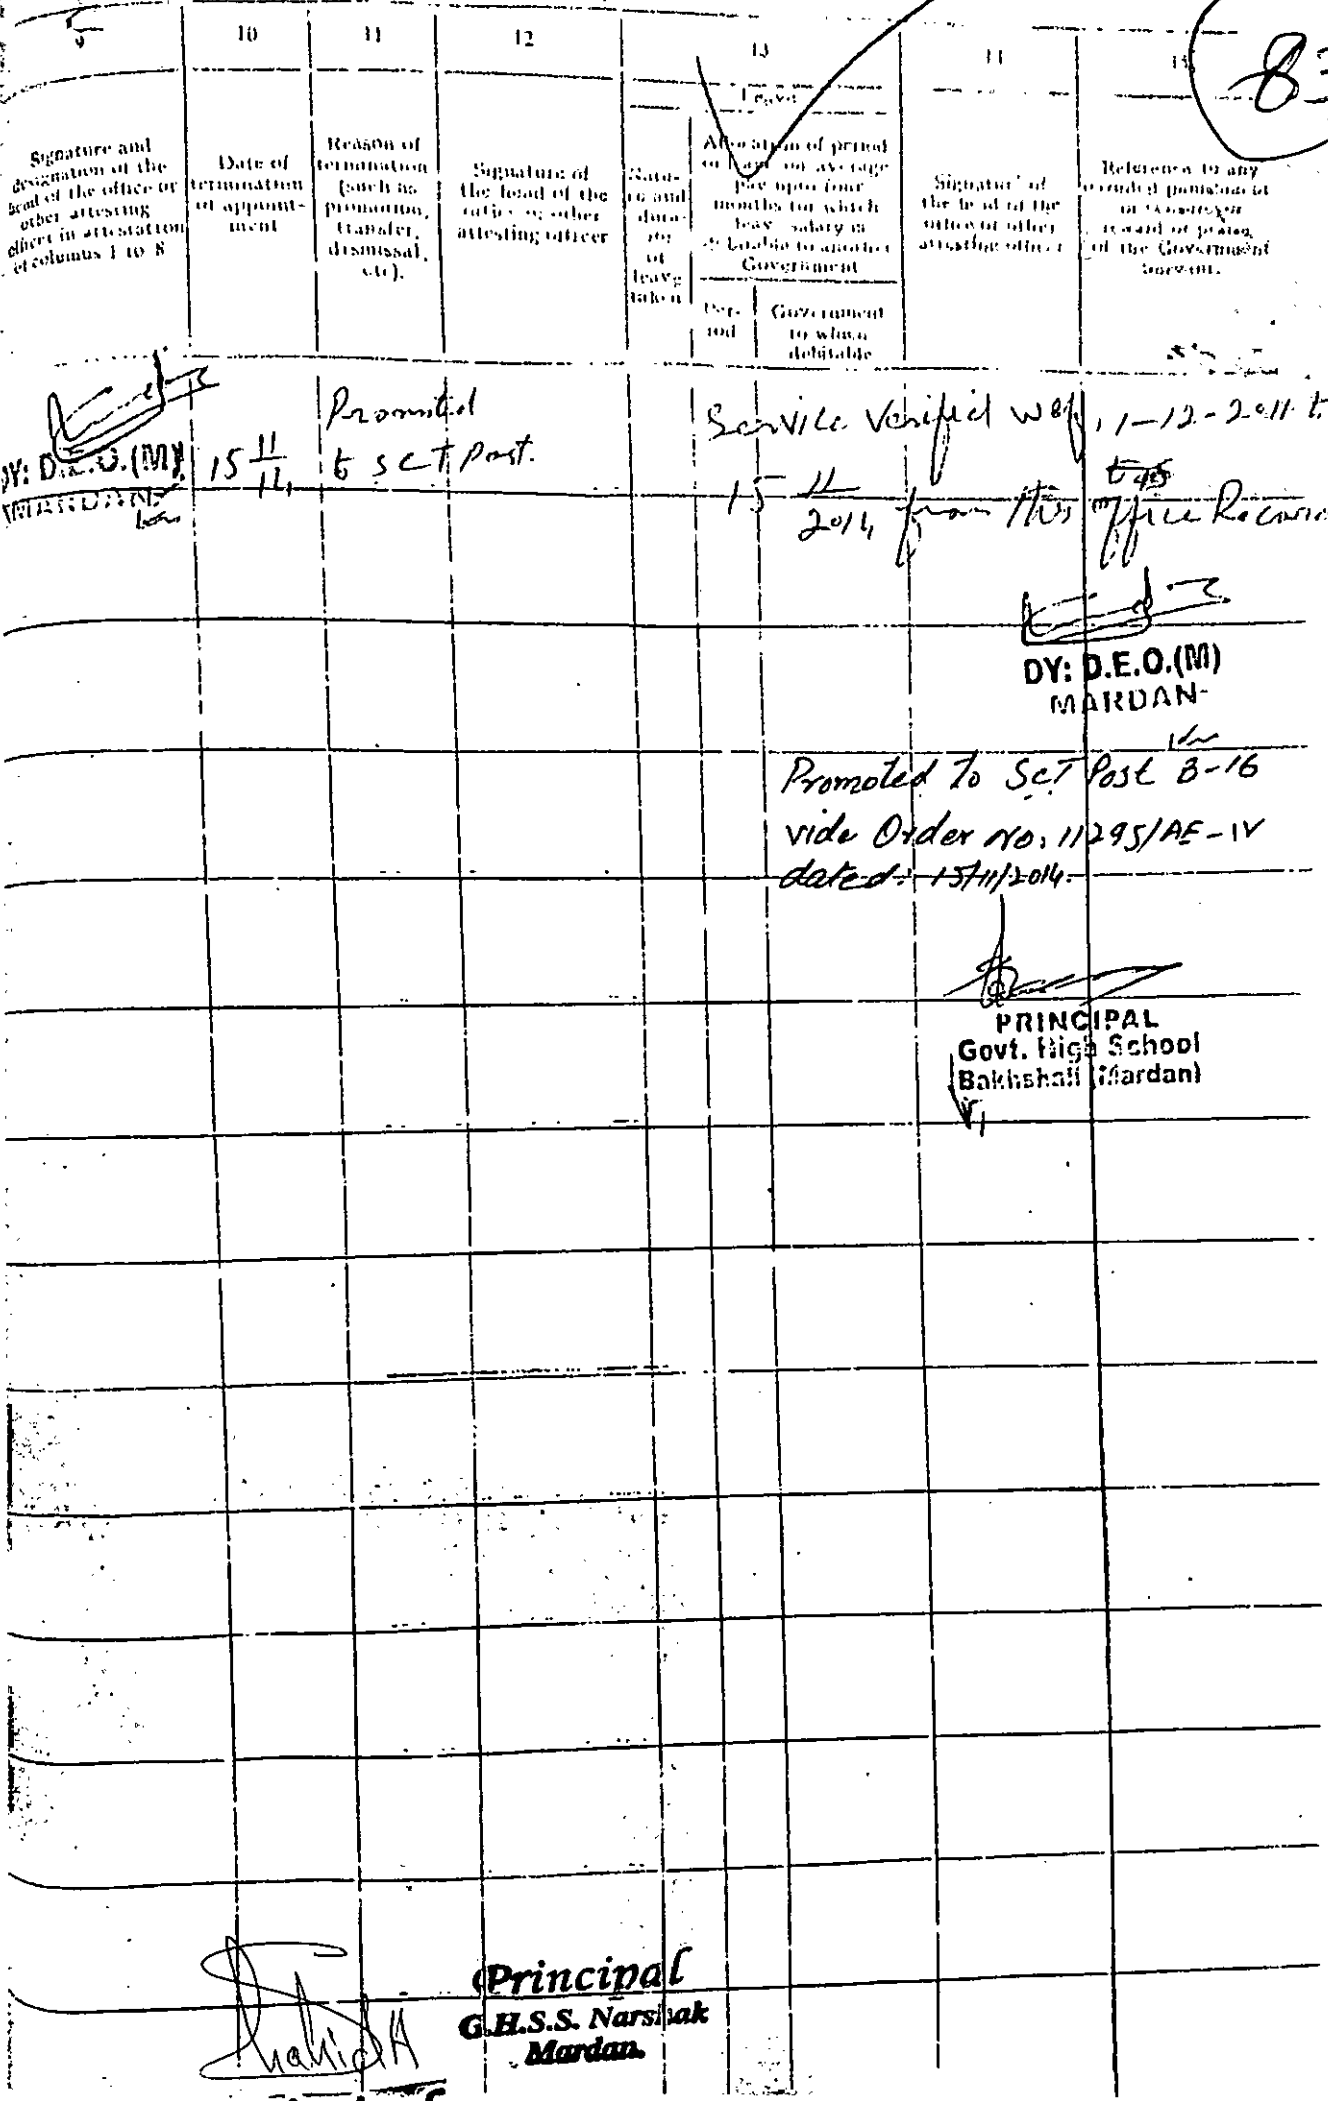 9 10 11 12 13 14 15
83
Leave
Signature and
designation of the
head of the office or
other attesting
officer in attestation
of columns 1 to 8
Date of
termination
of appoint-
ment
Reason of
termination
(such as
promotion,
transfer,
dismissal,
etc).
Signature of
the head of the
office or other
attesting officer
Natu-
re and
dura-
tion
of
leave
taken
Allocation of period
of leave on average
pay upto four
months for which
leave salary is
debitable to another
Government
Per-
iod
Government
to which
debitable
Signature of
the head of the
office or other
attesting officer
Reference to any
recorded punishment
or
reward or praise
of the Government
Servant.
DY: D.E.O.(M)
MARDAN
15 11/14
Promoted
to SCT Post.
Service Verified wef, 1-12-2011 t
15 11/2014 from this office Record
DY: D.E.O.(M)
MARDAN-
Promoted To SCT Post B-16
vide Order No: 11295/AE-IV
dated: 15/11/2014.
PRINCIPAL
Govt. High School
Bakhshali (Mardan)
Principal
G.H.S.S. Narshak
Mardan.